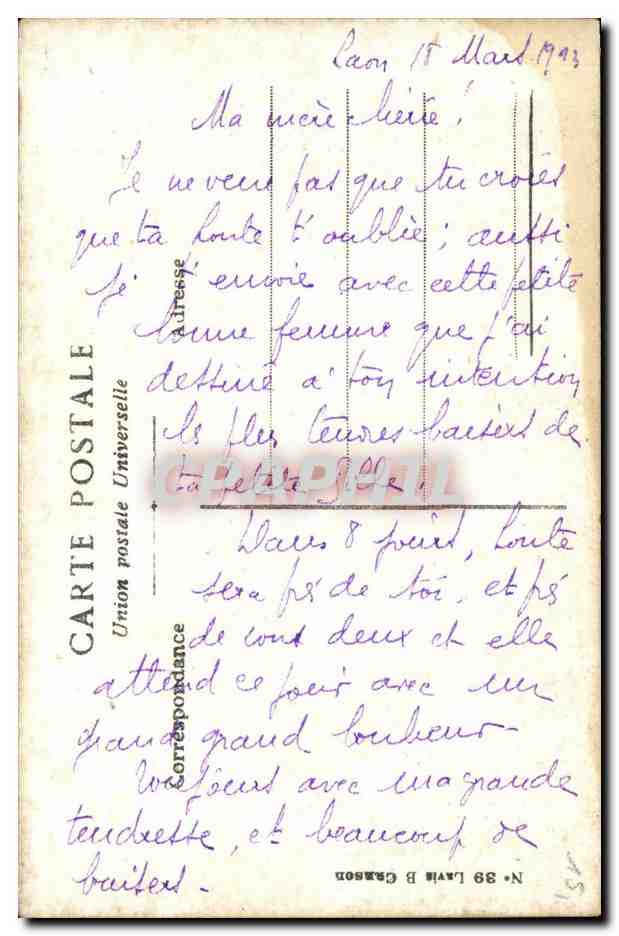 Laon 18 Mars 1913
Ma mère chérie !
Je ne veux pas que tu croies
que ta Loute t'oublie ; aussi
je t'envoie avec cette petite
bonne femme que j'ai
dessiné à ton intention
les plus tendres baisers de
ta petite fille.
Dans 8 jours, Loute
sera près de toi, et près
de vous deux et elle
attend ce jour avec un
grand grand bonheur -
Toujours avec ma grande
tendresse, et beaucoup de
baisers -
CARTE POSTALE
Union postale Universelle
Adresse
Correspondance
CPAPHIL
N° 39 Lavis B Canson